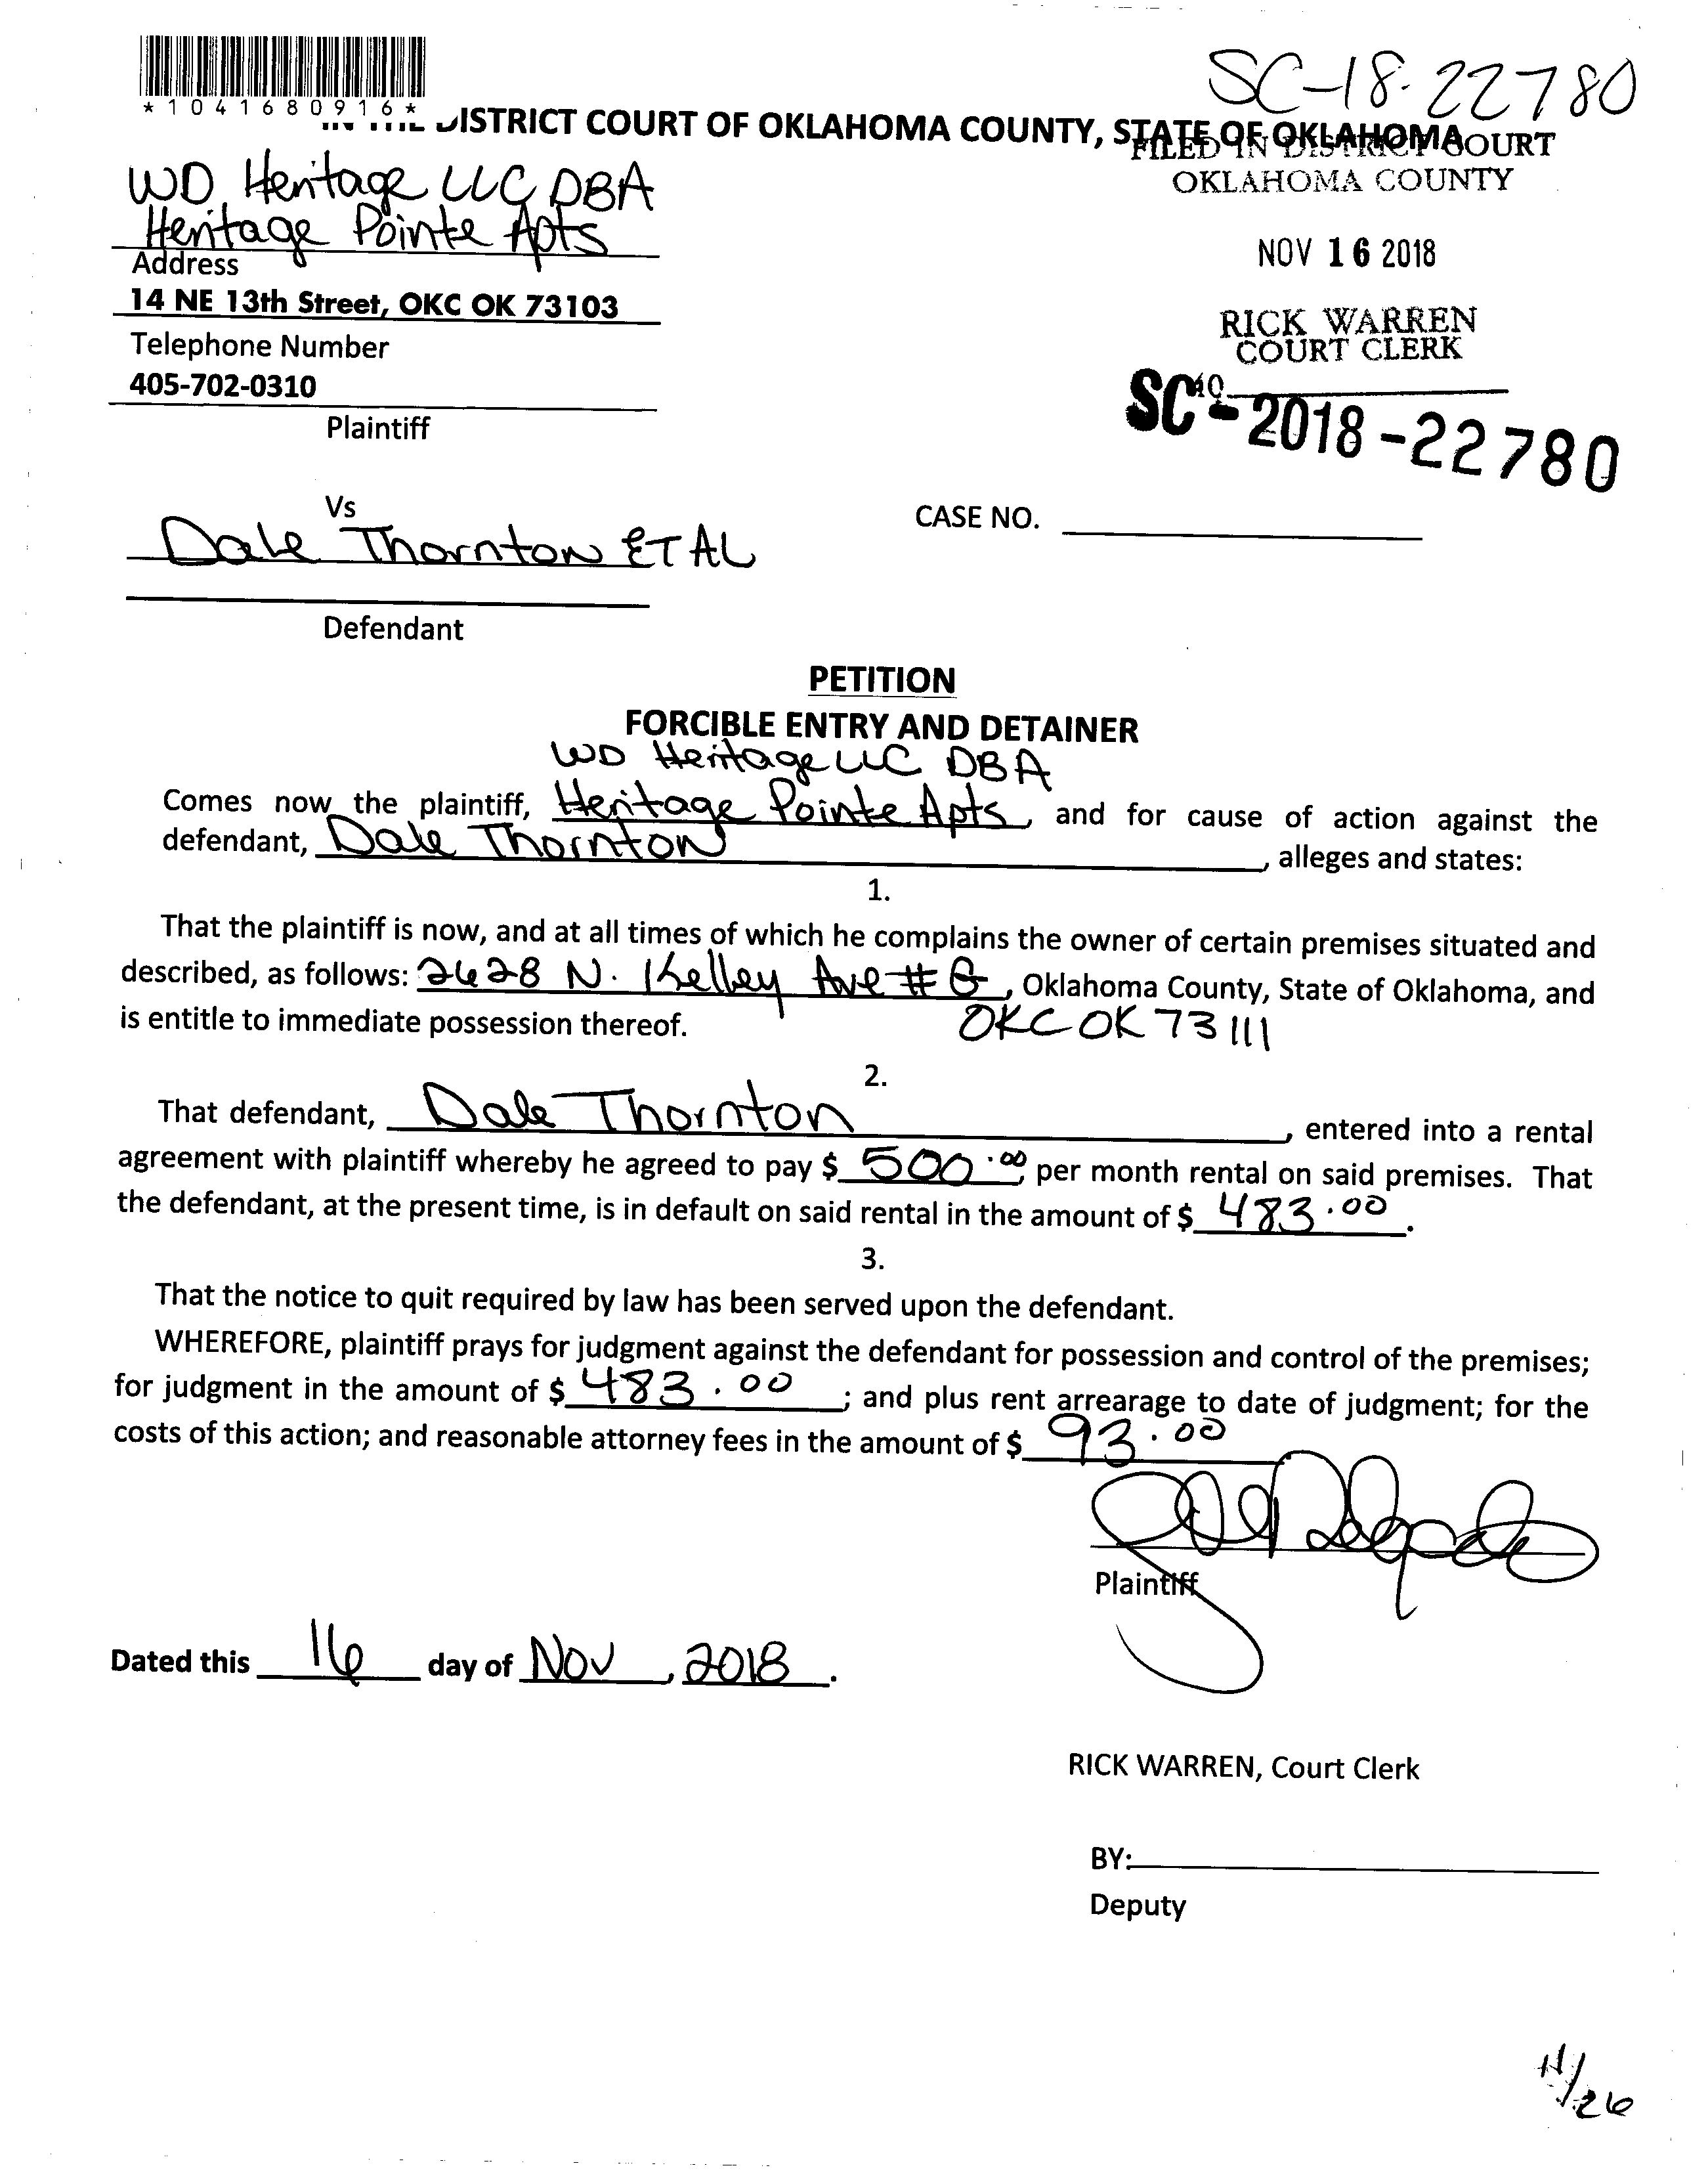 SC-18-22780
*1041680916*
DISTRICT COURT OF OKLAHOMA COUNTY, STATE OF OKLAHOMA
FILED IN DISTRICT COURT
OKLAHOMA COUNTY
WD Heritage LLC DBA
Heritage Pointe Apts
Address
14 NE 13th Street, OKC OK 73103
Telephone Number
405-702-0310
Plaintiff
NOV 16 2018
RICK WARREN
COURT CLERK
SC-2018-22780
Vs
Dale Thornton ET AL
CASE NO.
Defendant
PETITION
FORCIBLE ENTRY AND DETAINER
WD Heritage LLC DBA
Comes now the plaintiff, Heritage Pointe Apts, and for cause of action against the
defendant, Dale Thornton, alleges and states:
1.
That the plaintiff is now, and at all times of which he complains the owner of certain premises situated and
described, as follows: 2628 N. Kelley Ave #G, Oklahoma County, State of Oklahoma, and
is entitle to immediate possession thereof. OKC OK 73111
2.
That defendant, Dale Thornton, entered into a rental
agreement with plaintiff whereby he agreed to pay $ 500.00, per month rental on said premises. That
the defendant, at the present time, is in default on said rental in the amount of $ 483.00.
3.
That the notice to quit required by law has been served upon the defendant.
WHEREFORE, plaintiff prays for judgment against the defendant for possession and control of the premises;
for judgment in the amount of $ 483.00; and plus rent arrearage to date of judgment; for the
costs of this action; and reasonable attorney fees in the amount of $ 93.00
Plaintiff
Dated this 16 day of Nov, 2018.
RICK WARREN, Court Clerk
BY:
Deputy
11/26